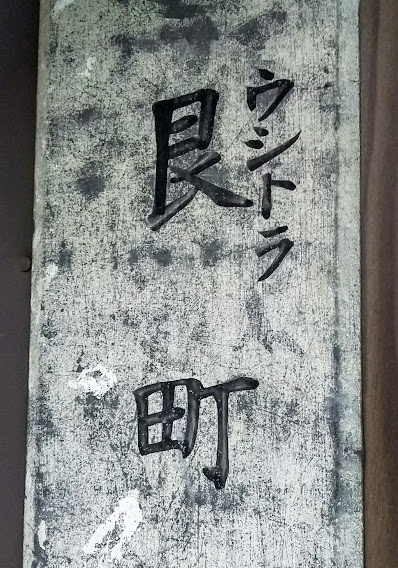 艮町
ウシトラ